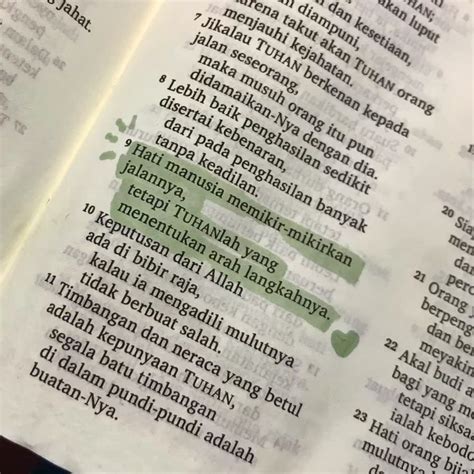 Jahat.
27
TUHAN;
akan luput
diampuni,
dan kesetiaan,
karena takut akan TUHAN orang
menjauhi kejahatan.
7 Jikalau TUHAN berkenan kepada
jalan seseorang,
maka musuh orang itu pun
didamaikan-Nya dengan dia.
8 Lebih baik penghasilan sedikit
disertai kebenaran,
dari pada penghasilan banyak
tanpa keadilan.
9 Hati manusia memikir-mikirkan
jalannya,
tetapi TUHANlah yang
menentukan arah langkahnya.
10 Keputusan dari Allah
ada di bibir raja,
kalau ia mengadili mulutnya
tidak berbuat salah.
11 Timbangan dan neraca yang betul
adalah kepunyaan TUHAN,
segala batu timbangan
di dalam pundi-pundi adalah
buatan-Nya.
20 Sia
mem
dan
21 Orang
berpeng
dan be
meyakin
22 Akal budi
bagi yang m
tetapi siksa
ialah kebod
23 Hati orang bi
mulutnya